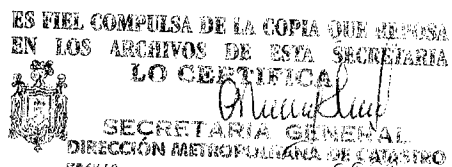 ES FIEL COMPULSA DE LA COPIA QUE REPOSA
EN LOS ARCHIVOS DE ESTA SECRETARIA
LO CERTIFICA
SECRETARIA GENERAL
DIRECCIÓN METROPOLITANA DE CATASTRO